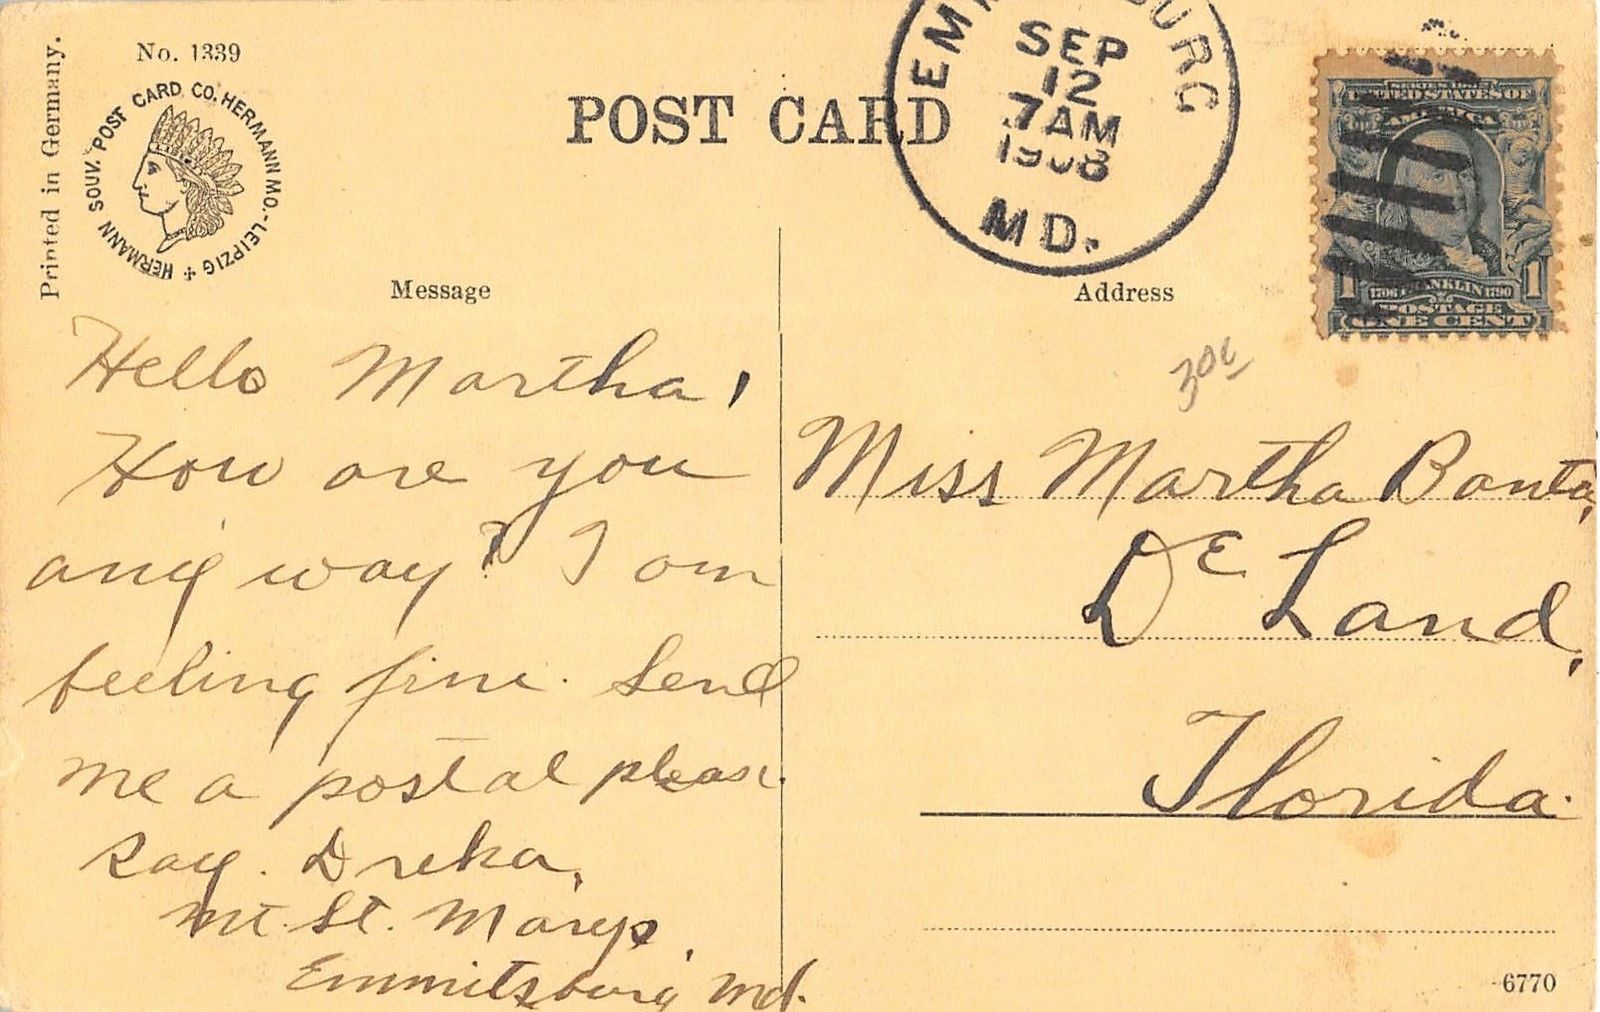 Printed in Germany.
No. 1339
HERMANN SOUV. POST CARD CO. HERMANN MO.-LEIPZIG
POST CARD
SEP
12
7 AM
1908
MD.
UNITED STATES OF
AMERICA
1 1706 FRANKLIN 1790 1
POSTAGE
ONE CENT
Message
Address
30¢
Hello Martha,
How are you
any way? I am
feeling fine. Send
me a postal please.
Ray. Dreka,
Mt. St. Marys,
Emmitsburg Md.
Miss Martha Banta,
De Land,
Florida.
6770